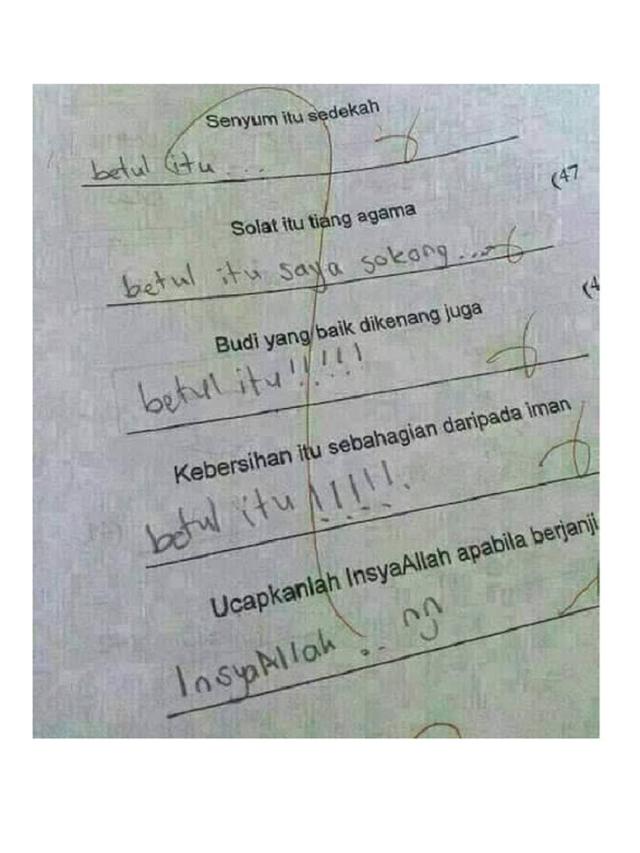 Senyum itu sedekah
betul itu...
(47
Solat itu tiang agama
betul itu saya sokong....
(4
Budi yang baik dikenang juga
betul itu!!!!!
Kebersihan itu sebahagian daripada iman
betul itu!!!!!.
Ucapkanlah InsyaAllah apabila berjanji
InsyaAllah..